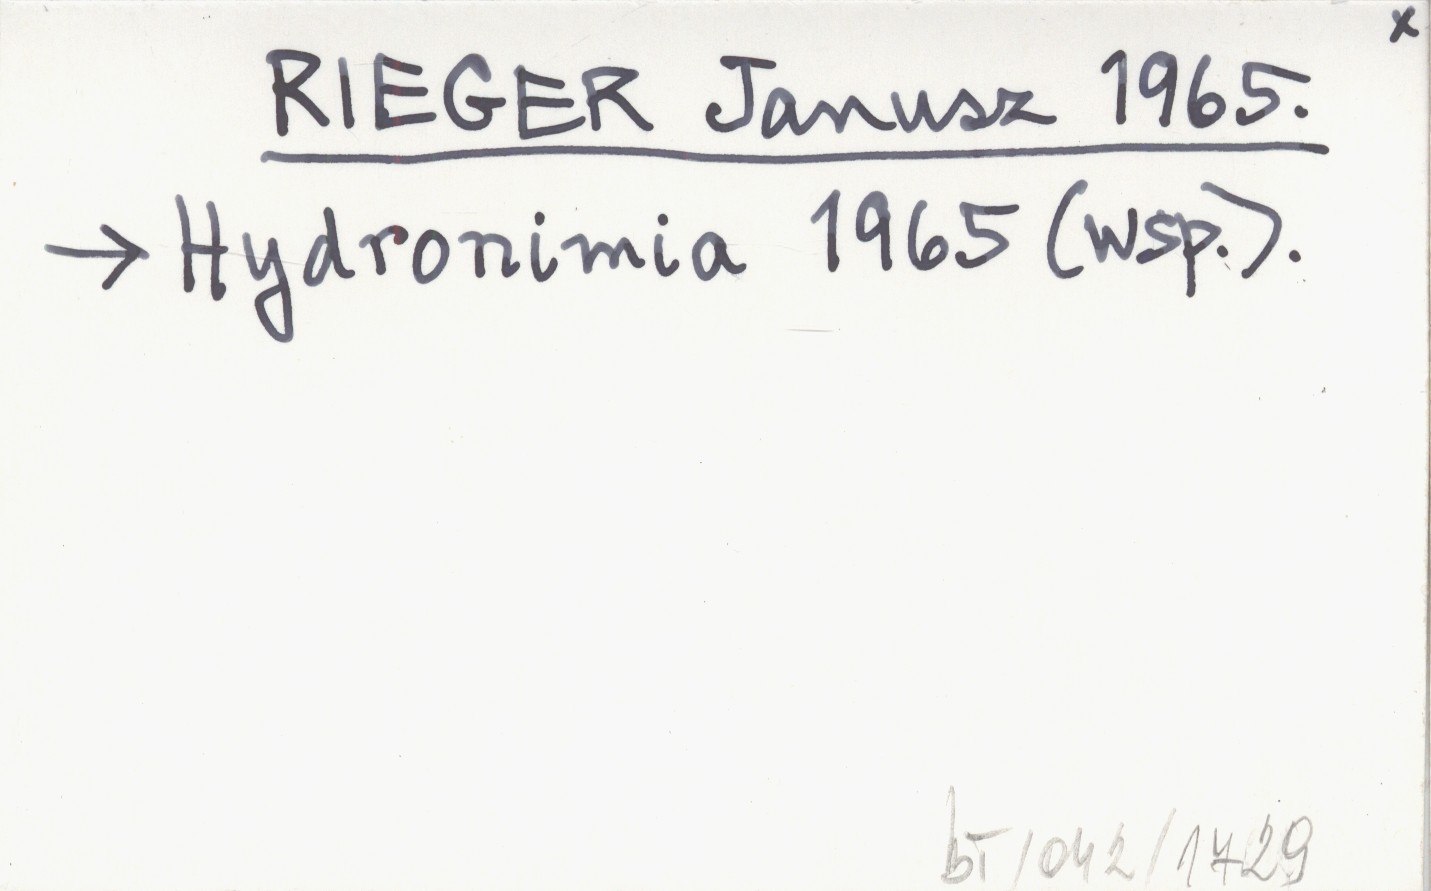 x
RIEGER Janusz 1965.
→ Hydronimia 1965 (wsp.).
bT/042/1729